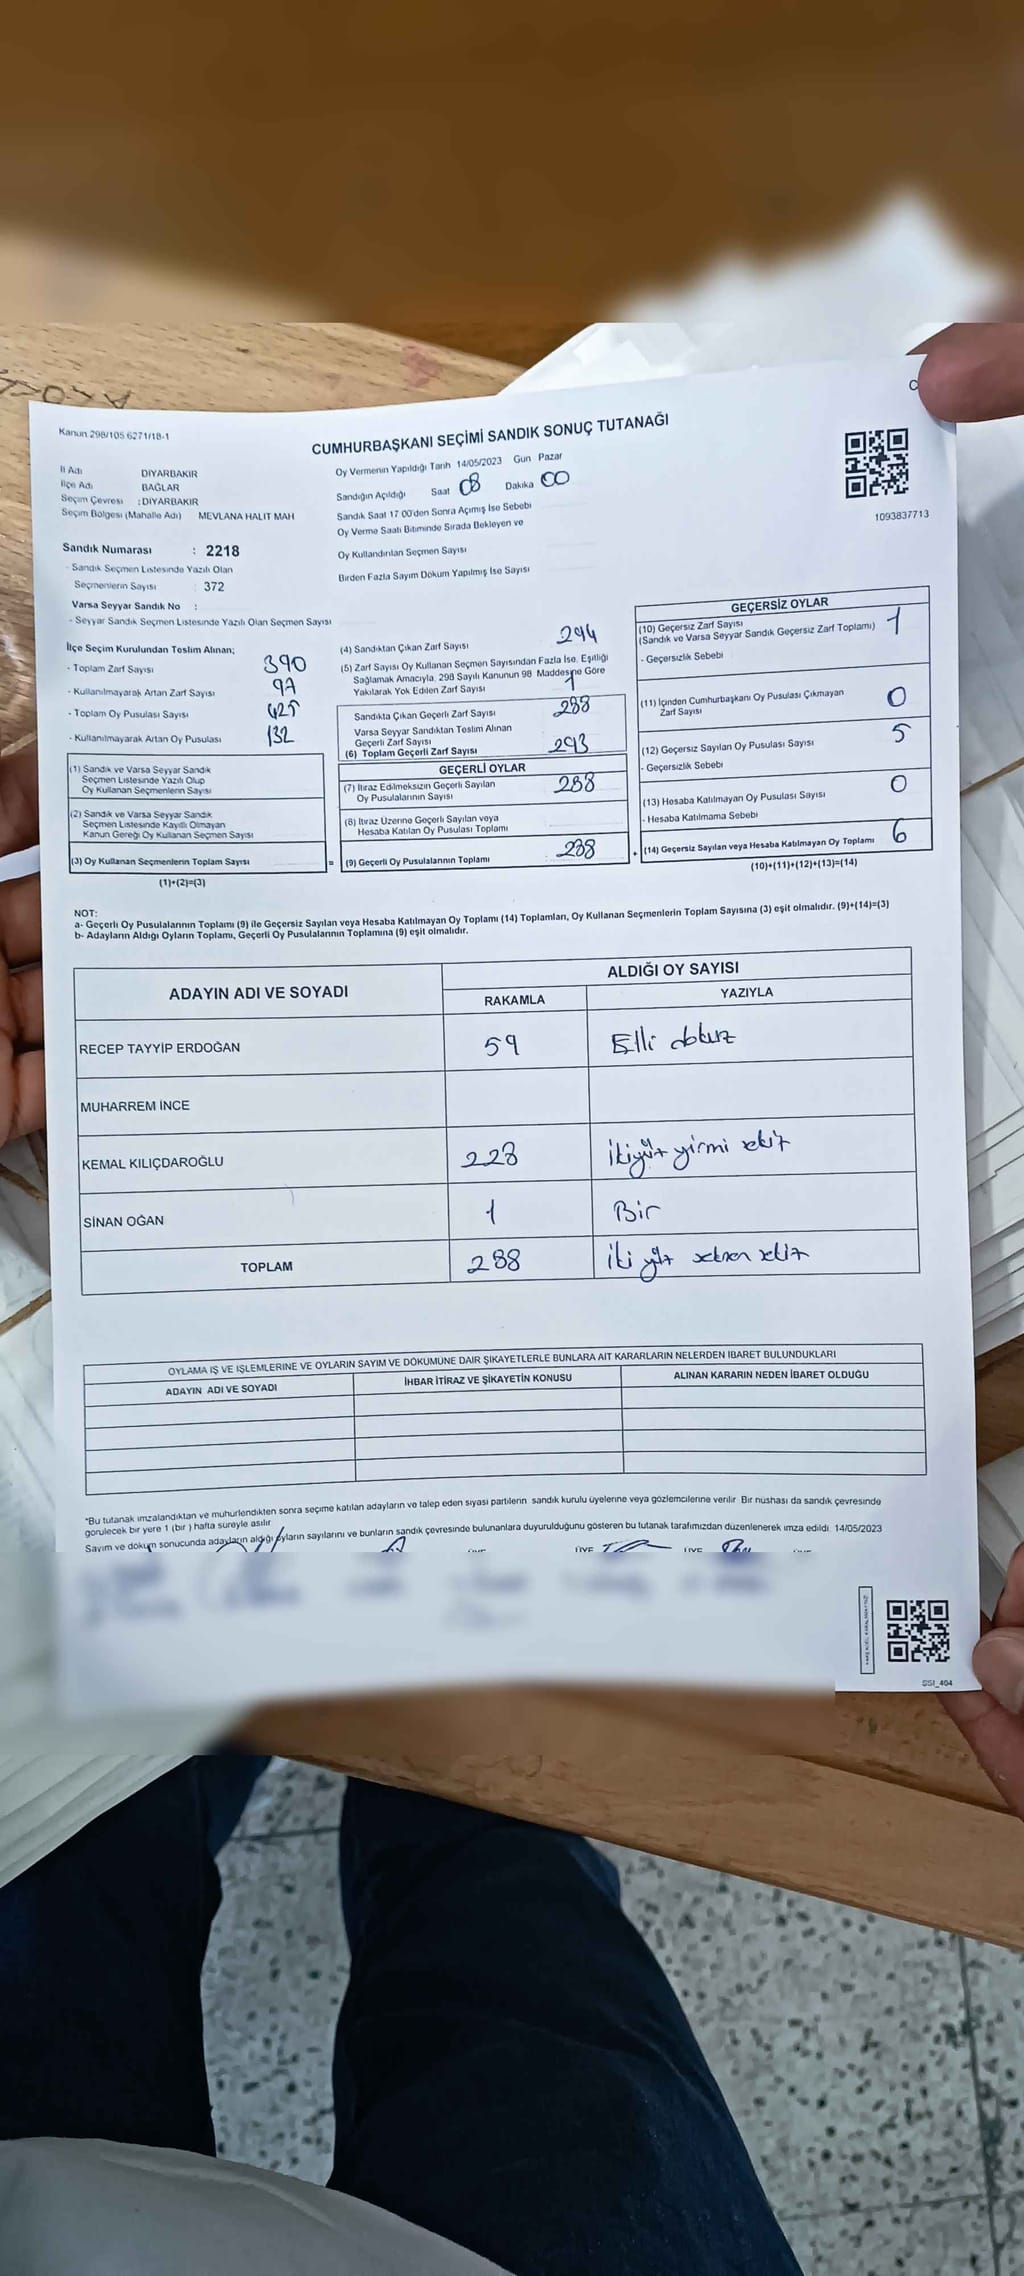 Kanun 298/105 6271/18-1
CUMHURBAŞKANI SEÇİMİ SANDIK SONUÇ TUTANAĞI
İl Adı DİYARBAKIR
İlçe Adı BAĞLAR
Seçim Çevresi : DİYARBAKIR
Seçim Bölgesi (Mahalle Adı) MEVLANA HALIT MAH
Oy Vermenin Yapıldığı Tarih 14/05/2023 Gun Pazar
Sandığın Açıldığı Saat 08 Dakika 00
Sandık Saat 17 00'den Sonra Açımış İse Sebebi
Oy Verme Saati Bitiminde Sırada Bekleyen ve
Oy Kullandırılan Seçmen Sayısı
Birden Fazla Sayım Döküm Yapılmış İse Sayısı
1093837713
Sandık Numarası : 2218
- Sandık Seçmen Listesinde Yazılı Olan
Seçmenlerin Sayısı : 372
Varsa Seyyar Sandık No :
- Seyyar Sandık Seçmen Listesinde Yazılı Olan Seçmen Sayısı
İlçe Seçim Kurulundan Teslim Alınan;
- Toplam Zarf Sayısı 390
- Kullanılmayarak Artan Zarf Sayısı 97
- Toplam Oy Pusulası Sayısı 425
- Kullanılmayarak Artan Oy Pusulası 132
(1) Sandık ve Varsa Seyyar Sandık
Seçmen Listesinde Yazılı Olup
Oy Kullanan Seçmenlerin Sayısı
(2) Sandık ve Varsa Seyyar Sandık
Seçmen Listesinde Kayıtlı Olmayan
Kanun Gereği Oy Kullanan Seçmen Sayısı
(3) Oy Kullanan Seçmenlerin Toplam Sayısı
(1)+(2)=(3)
(4) Sandıktan Çıkan Zarf Sayısı 294
(5) Zarf Sayısı Oy Kullanan Seçmen Sayısından Fazla İse, Eşitliği
Sağlamak Amacıyla, 298 Sayılı Kanunun 98 Maddesine Göre
Yakılarak Yok Edilen Zarf Sayısı 1
Sandıkta Çıkan Geçerli Zarf Sayısı 288
Varsa Seyyar Sandıktan Teslim Alınan
Geçerli Zarf Sayısı
(6) Toplam Geçerli Zarf Sayısı 293
GEÇERLİ OYLAR
(7) İtiraz Edilmeksizin Geçerli Sayılan
Oy Pusulalarının Sayısı 288
(8) İtiraz Üzerine Geçerli Sayılan veya
Hesaba Katılan Oy Pusulası Toplamı
= (9) Geçerli Oy Pusulalarının Toplamı : 288
GEÇERSİZ OYLAR
(10) Geçersiz Zarf Sayısı
(Sandık ve Varsa Seyyar Sandık Geçersiz Zarf Toplamı) 1
- Geçersizlik Sebebi
(11) İçinden Cumhurbaşkanı Oy Pusulası Çıkmayan
Zarf Sayısı 0
(12) Geçersiz Sayılan Oy Pusulası Sayısı 5
- Geçersizlik Sebebi
(13) Hesaba Katılmayan Oy Pusulası Sayısı 0
- Hesaba Katılmama Sebebi
+ (14) Geçersiz Sayılan veya Hesaba Katılmayan Oy Toplamı 6
(10)+(11)+(12)+(13)=(14)
NOT:
a- Geçerli Oy Pusulalarının Toplamı (9) ile Geçersiz Sayılan veya Hesaba Katılmayan Oy Toplamı (14) Toplamları, Oy Kullanan Seçmenlerin Toplam Sayısına (3) eşit olmalıdır. (9)+(14)=(3)
b- Adayların Aldığı Oyların Toplamı, Geçerli Oy Pusulalarının Toplamına (9) eşit olmalıdır.
ADAYIN ADI VE SOYADI ALDIĞI OY SAYISI
RAKAMLA YAZIYLA
RECEP TAYYİP ERDOĞAN 59 Elli dokuz
MUHARREM İNCE
KEMAL KILIÇDAROĞLU 228 İkiyüz yirmi sekiz
SİNAN OĞAN 1 Bir
TOPLAM 288 İki yüz seksen sekiz
OYLAMA İŞ VE İŞLEMLERİNE VE OYLARIN SAYIM VE DÖKÜMÜNE DAİR ŞİKAYETLERLE BUNLARA AİT KARARLARIN NELERDEN İBARET BULUNDUKLARI
ADAYIN ADI VE SOYADI İHBAR İTİRAZ VE ŞİKAYETİN KONUSU ALINAN KARARIN NEDEN İBARET OLDUĞU
*Bu tutanak imzalandıktan ve mühürlendikten sonra seçime katılan adayların ve talep eden siyasi partilerin sandık kurulu üyelerine veya gözlemcilerine verilir Bir nüshası da sandık çevresinde
görülecek bir yere 1 (bir) hafta süreyle asılır
Sayım ve döküm sonucunda adayların aldığı oyların sayılarını ve bunların sandık çevresinde bulunanlara duyurulduğunu gösteren bu tutanak tarafımızdan düzenlenerek imza edildi 14/05/2023
ÜYE ÜYE
SSI_404